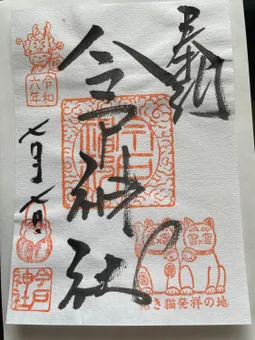 奉拝
今戸神社
令和
六年
七月七日
今戸
神社
招き猫発祥の地